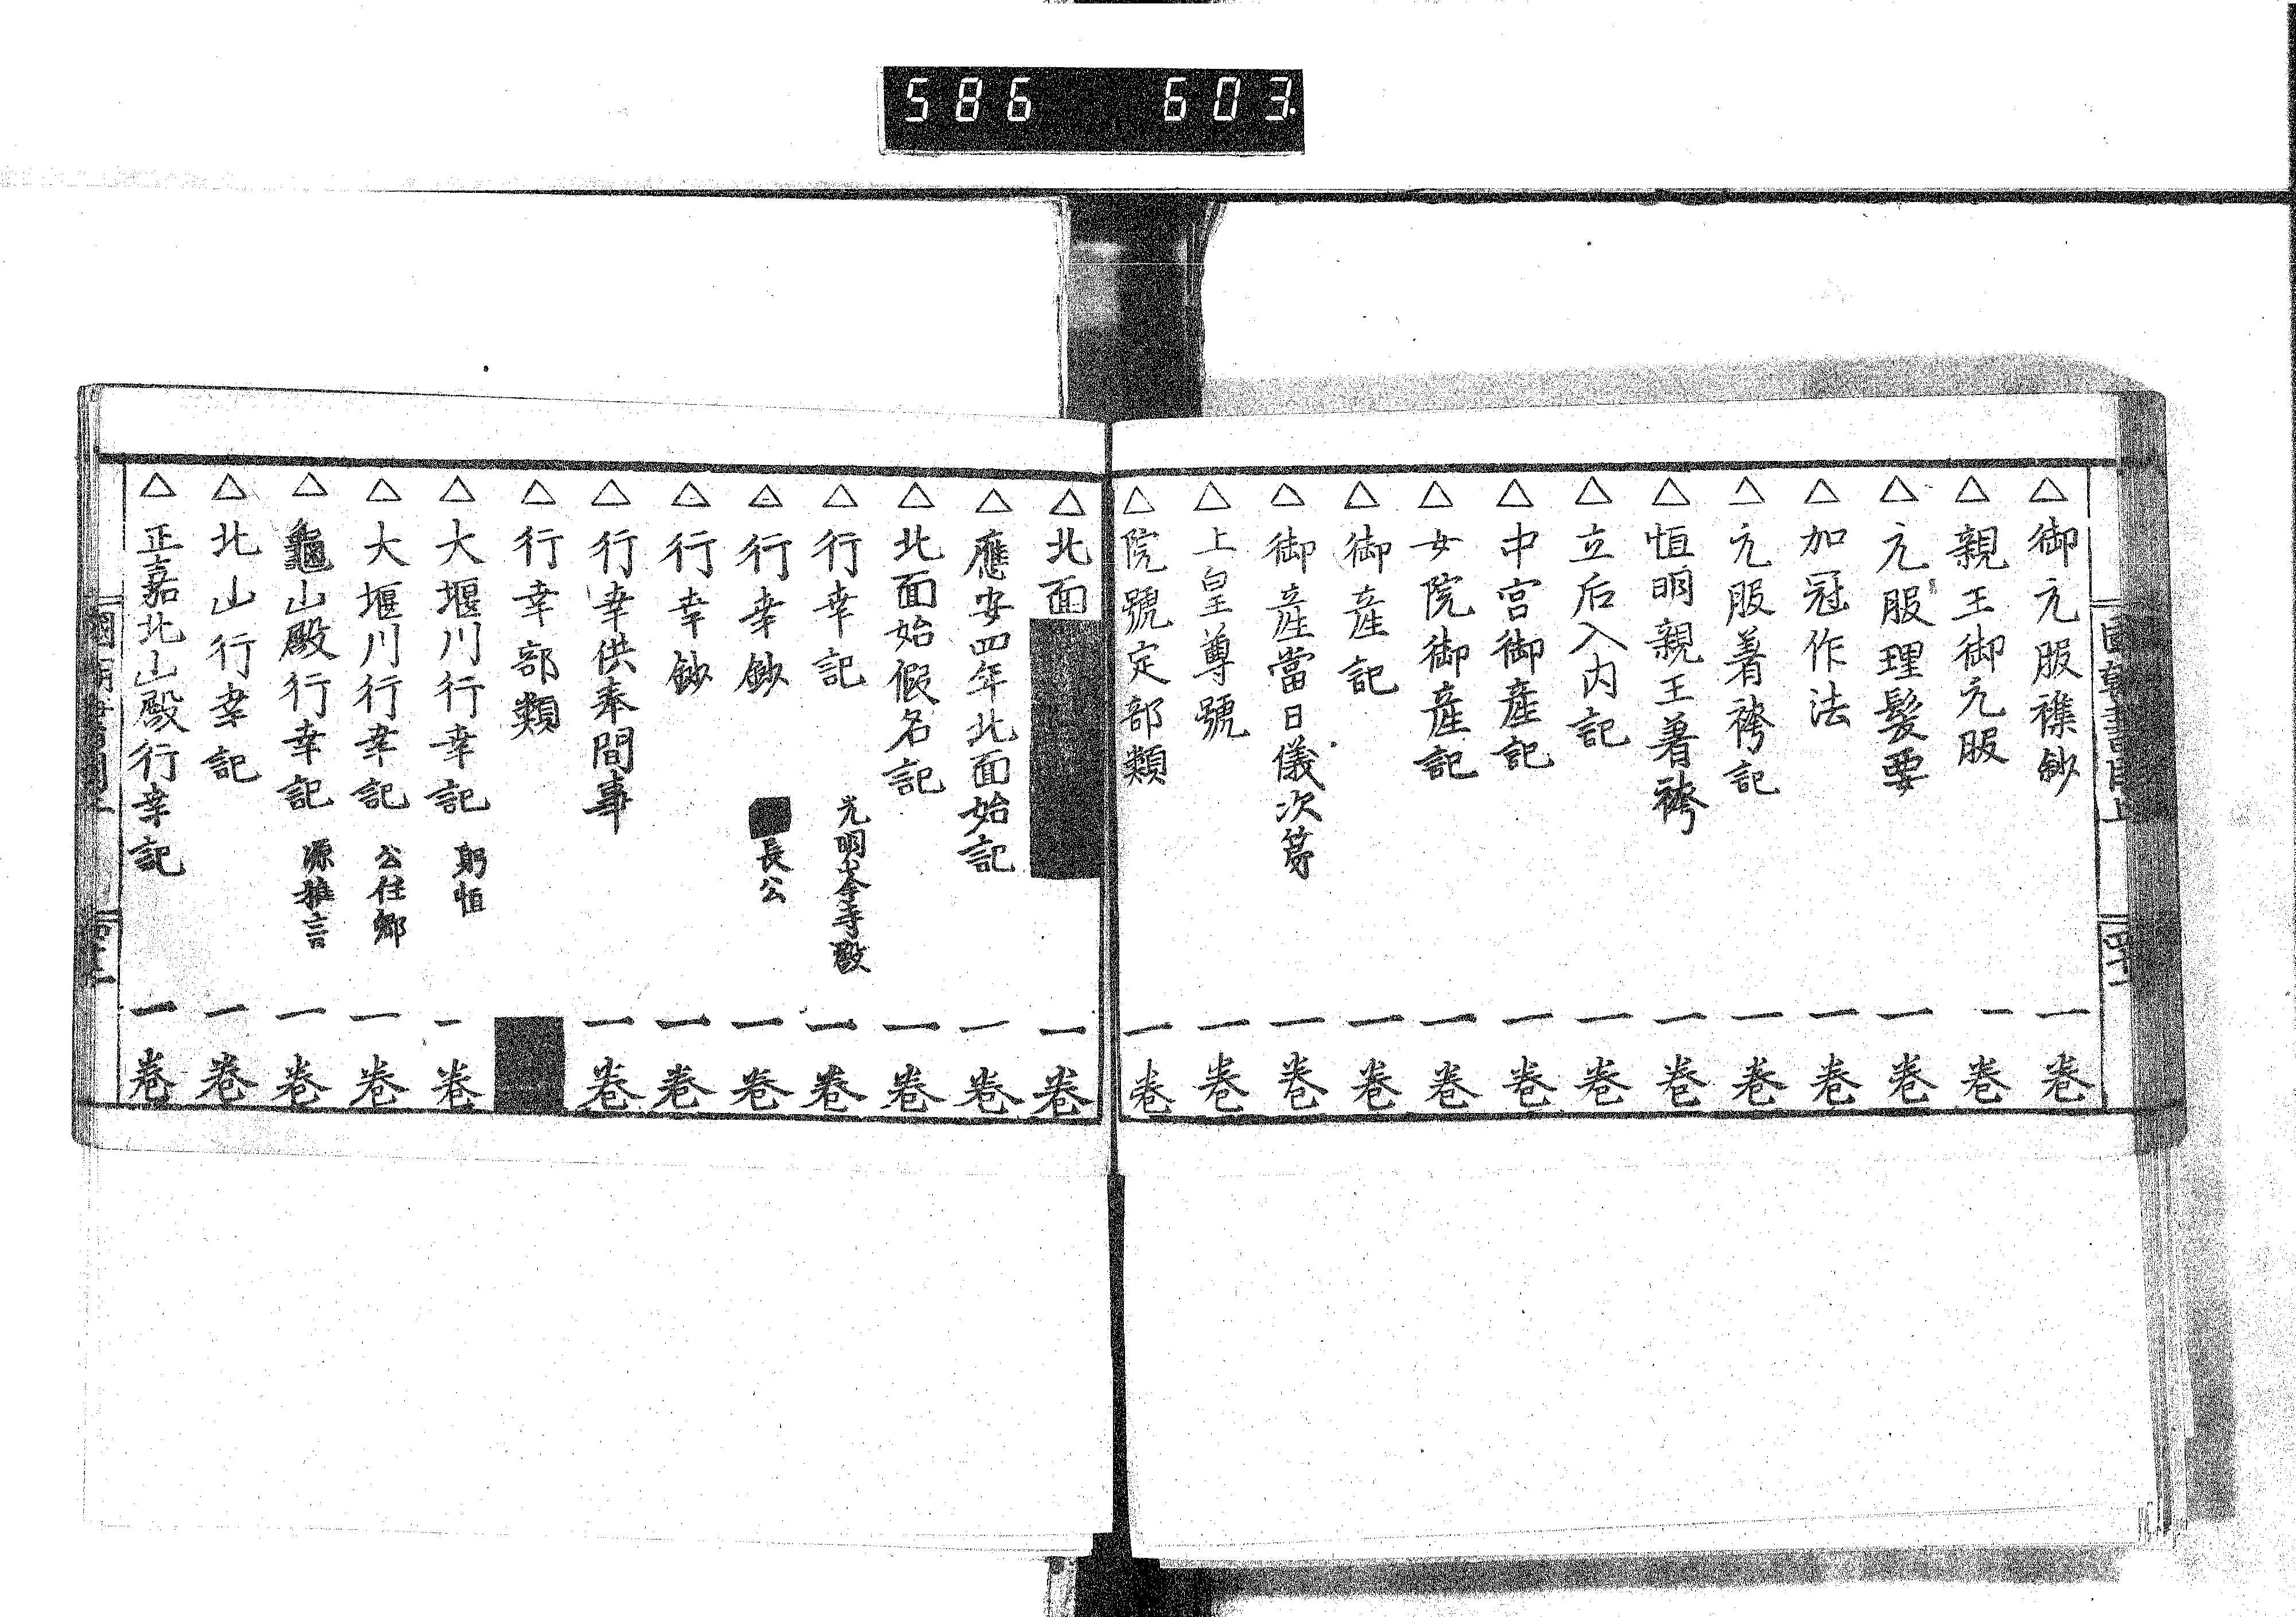 586 603.
△御元服襍鈔 一卷
△親王御元服 一卷
△元服理髮要 一卷
△加冠作法 一卷
△元服着袴記 一卷
△恒明親王著袴 一卷
△立后入内記 一卷
△中宮御產記 一卷
△女院御產記 一卷
△御產記 一卷
△御產當日儀次第 一卷
△上皇尊號 一卷
△院號定部類 一卷
△北面 一卷
△應安四年北面始記 一卷
△北面始假名記 一卷
△行幸記 光明峯寺殿 一卷
△行幸鈔 長公 一卷
△行幸鈔 一卷
△行幸供奉間事 一卷
△行幸部類
△大堰川行幸記 躬恒 一卷
△大堰川行幸記 公任卿 一卷
△龜山殿行幸記 源雅言 一卷
△北山行幸記 一卷
△正嘉北山殿行幸記 一卷